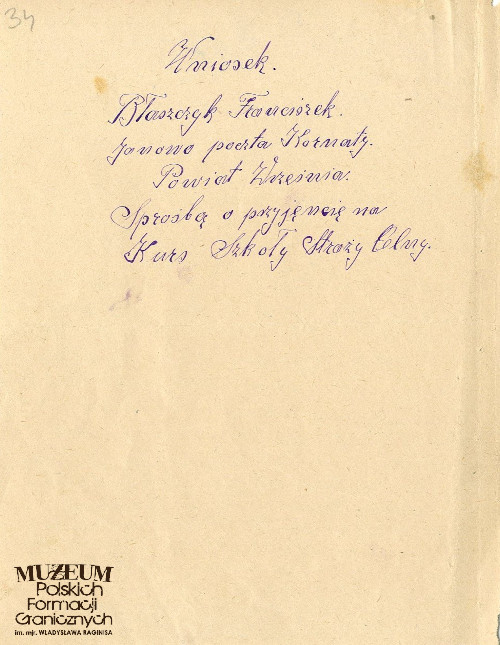 34
Wniosek.
Błaszczyk Franciszek.
Janowo poczta Kornaty.
Powiat Września.
Sprośbą o przyjęncię na
Kurs Szkoły Straży Celny.
MUZEUM
Polskich
Formacji
Granicznych
im. mjr. WŁADYSŁAWA RAGINISA